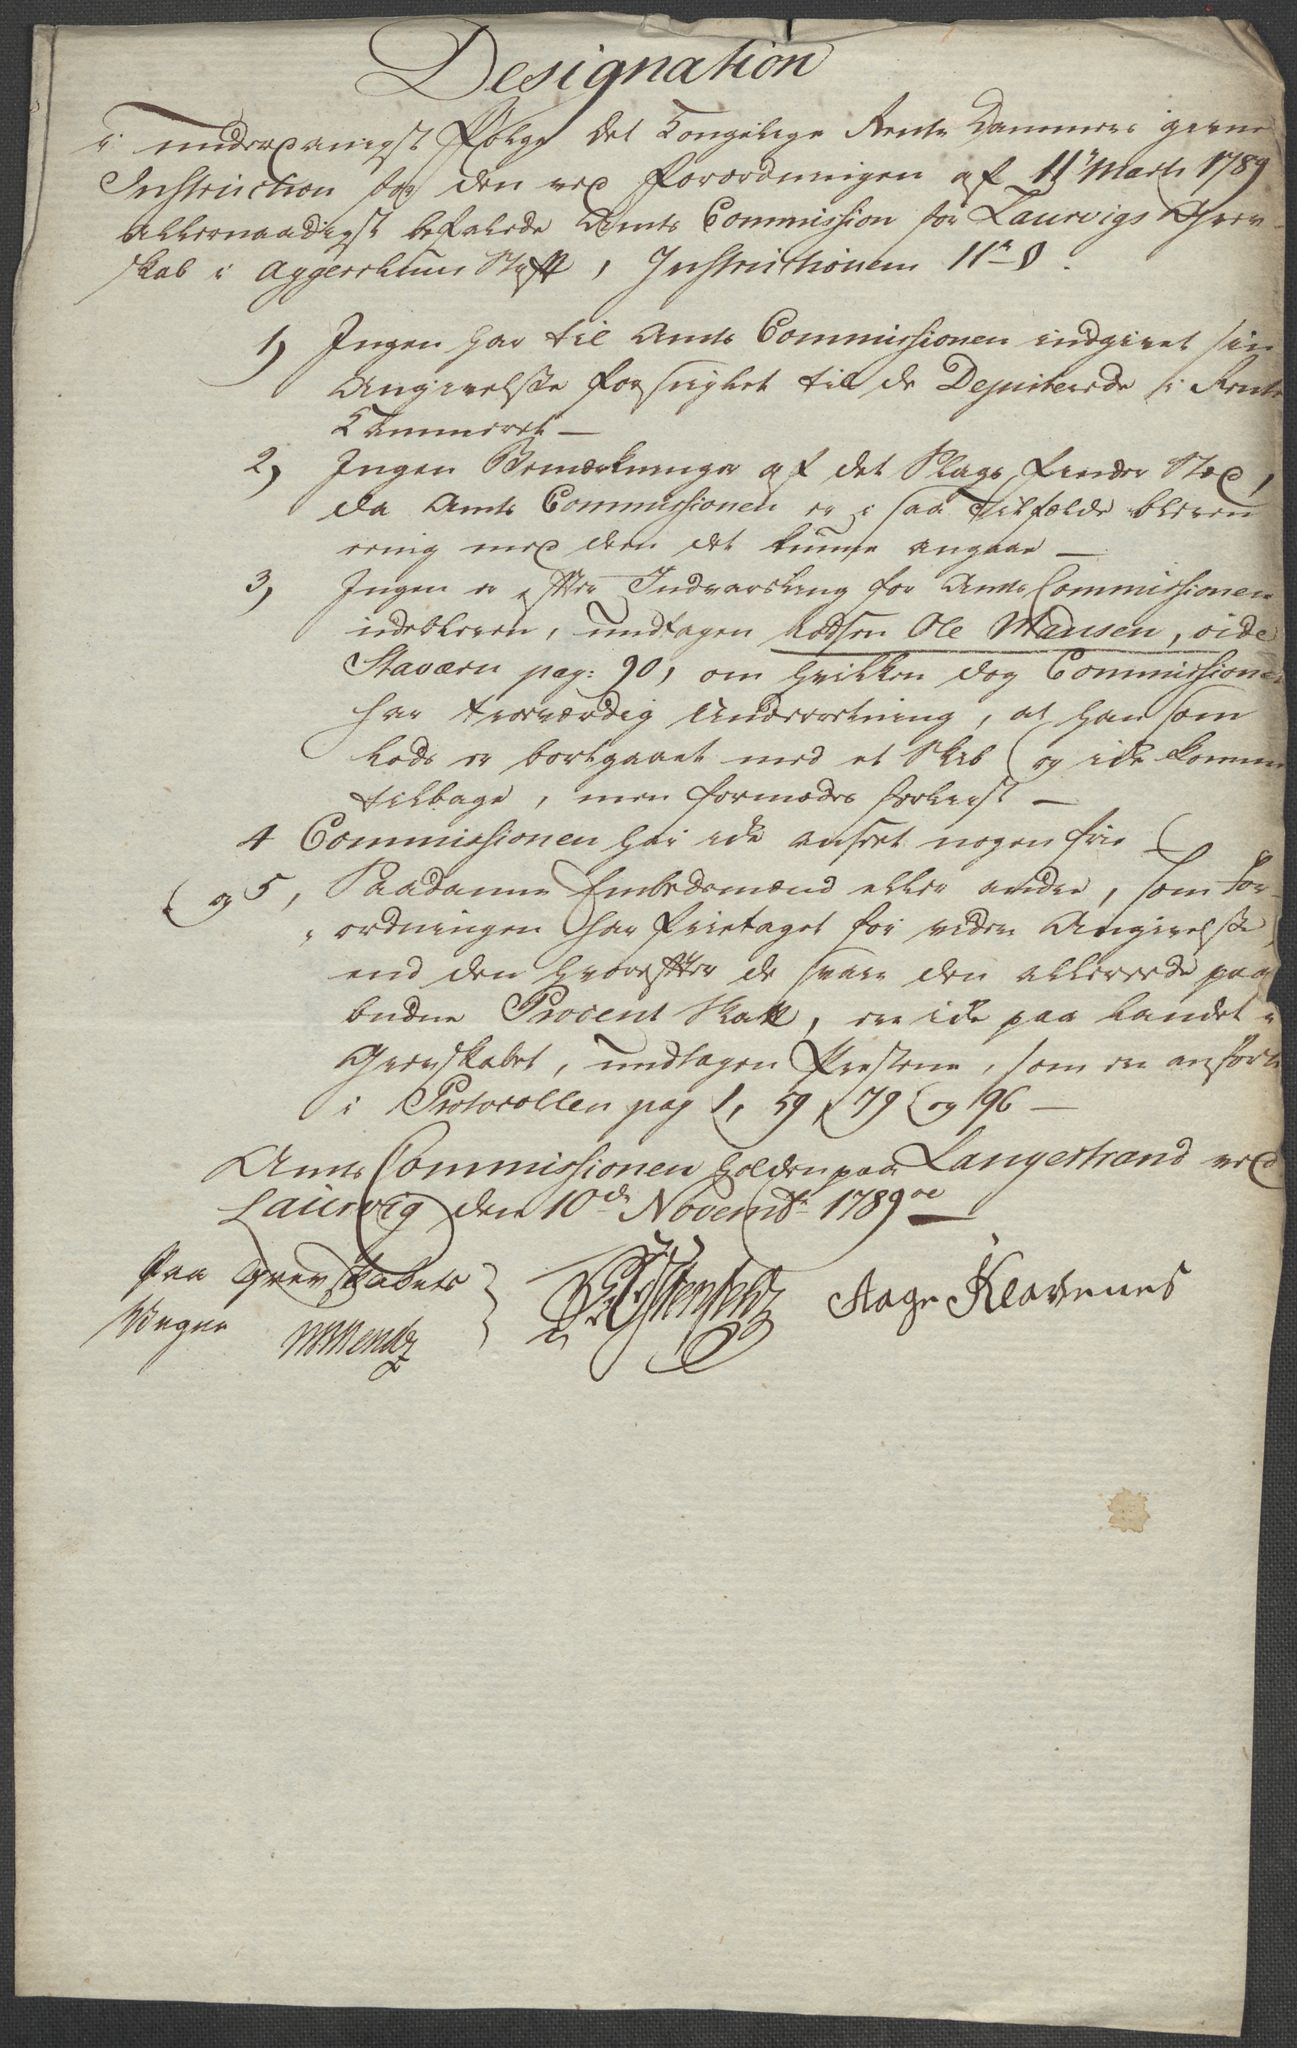 Designation
i underdanigst Følge det Kongelige Rente Kammers givne
Instruction for den ved Forordningen af 11te Marti 1789
allernaadigst befalede Amts Commission for Laurvigs Grev-
skab i Aggershuus Stift, Instructionens 11te §.
1) Ingen har til Amts Commissionen indgivet sin
Angivelse forseiglet til de Deputerede i Rente
Kammeret —
2) Ingen Bemærkninger af det Slags finder Sted,
da Amts Commissionen er i saa Tilfælde bleven
eenig med dem det kunne angaae —
3) Ingen er efter Indvarsling for Amts Commissionen
udebleven, undtagen Lodsen Ole Hansen, vide
Staværn pag: 90, om hvilken dog Commissionen
har troeværdig Underretning, at han som
Lods er bortgaaet med et Skib og ikke kommen
tilbage, men formodes forliist —
4 Commissionen har ikke anseet nogen frie
og 5, Saadanne Embedsmænd eller andre, som For-
ordningen har fritaget for viden Angivelse
end den hvorefter de svare den allerede paa
budne Procent Skatt, ere ikke paa Landet i
Grevskabet, undtagen Præsterne, som ere anført
i Protocollen pag 1, 59, 79 og 96 —
Amts Commissionen holden paa Langestrand ved
Laurvig den 10de Novembr 1789
Paa Grevskabets
Vegne
Aage Klavenes